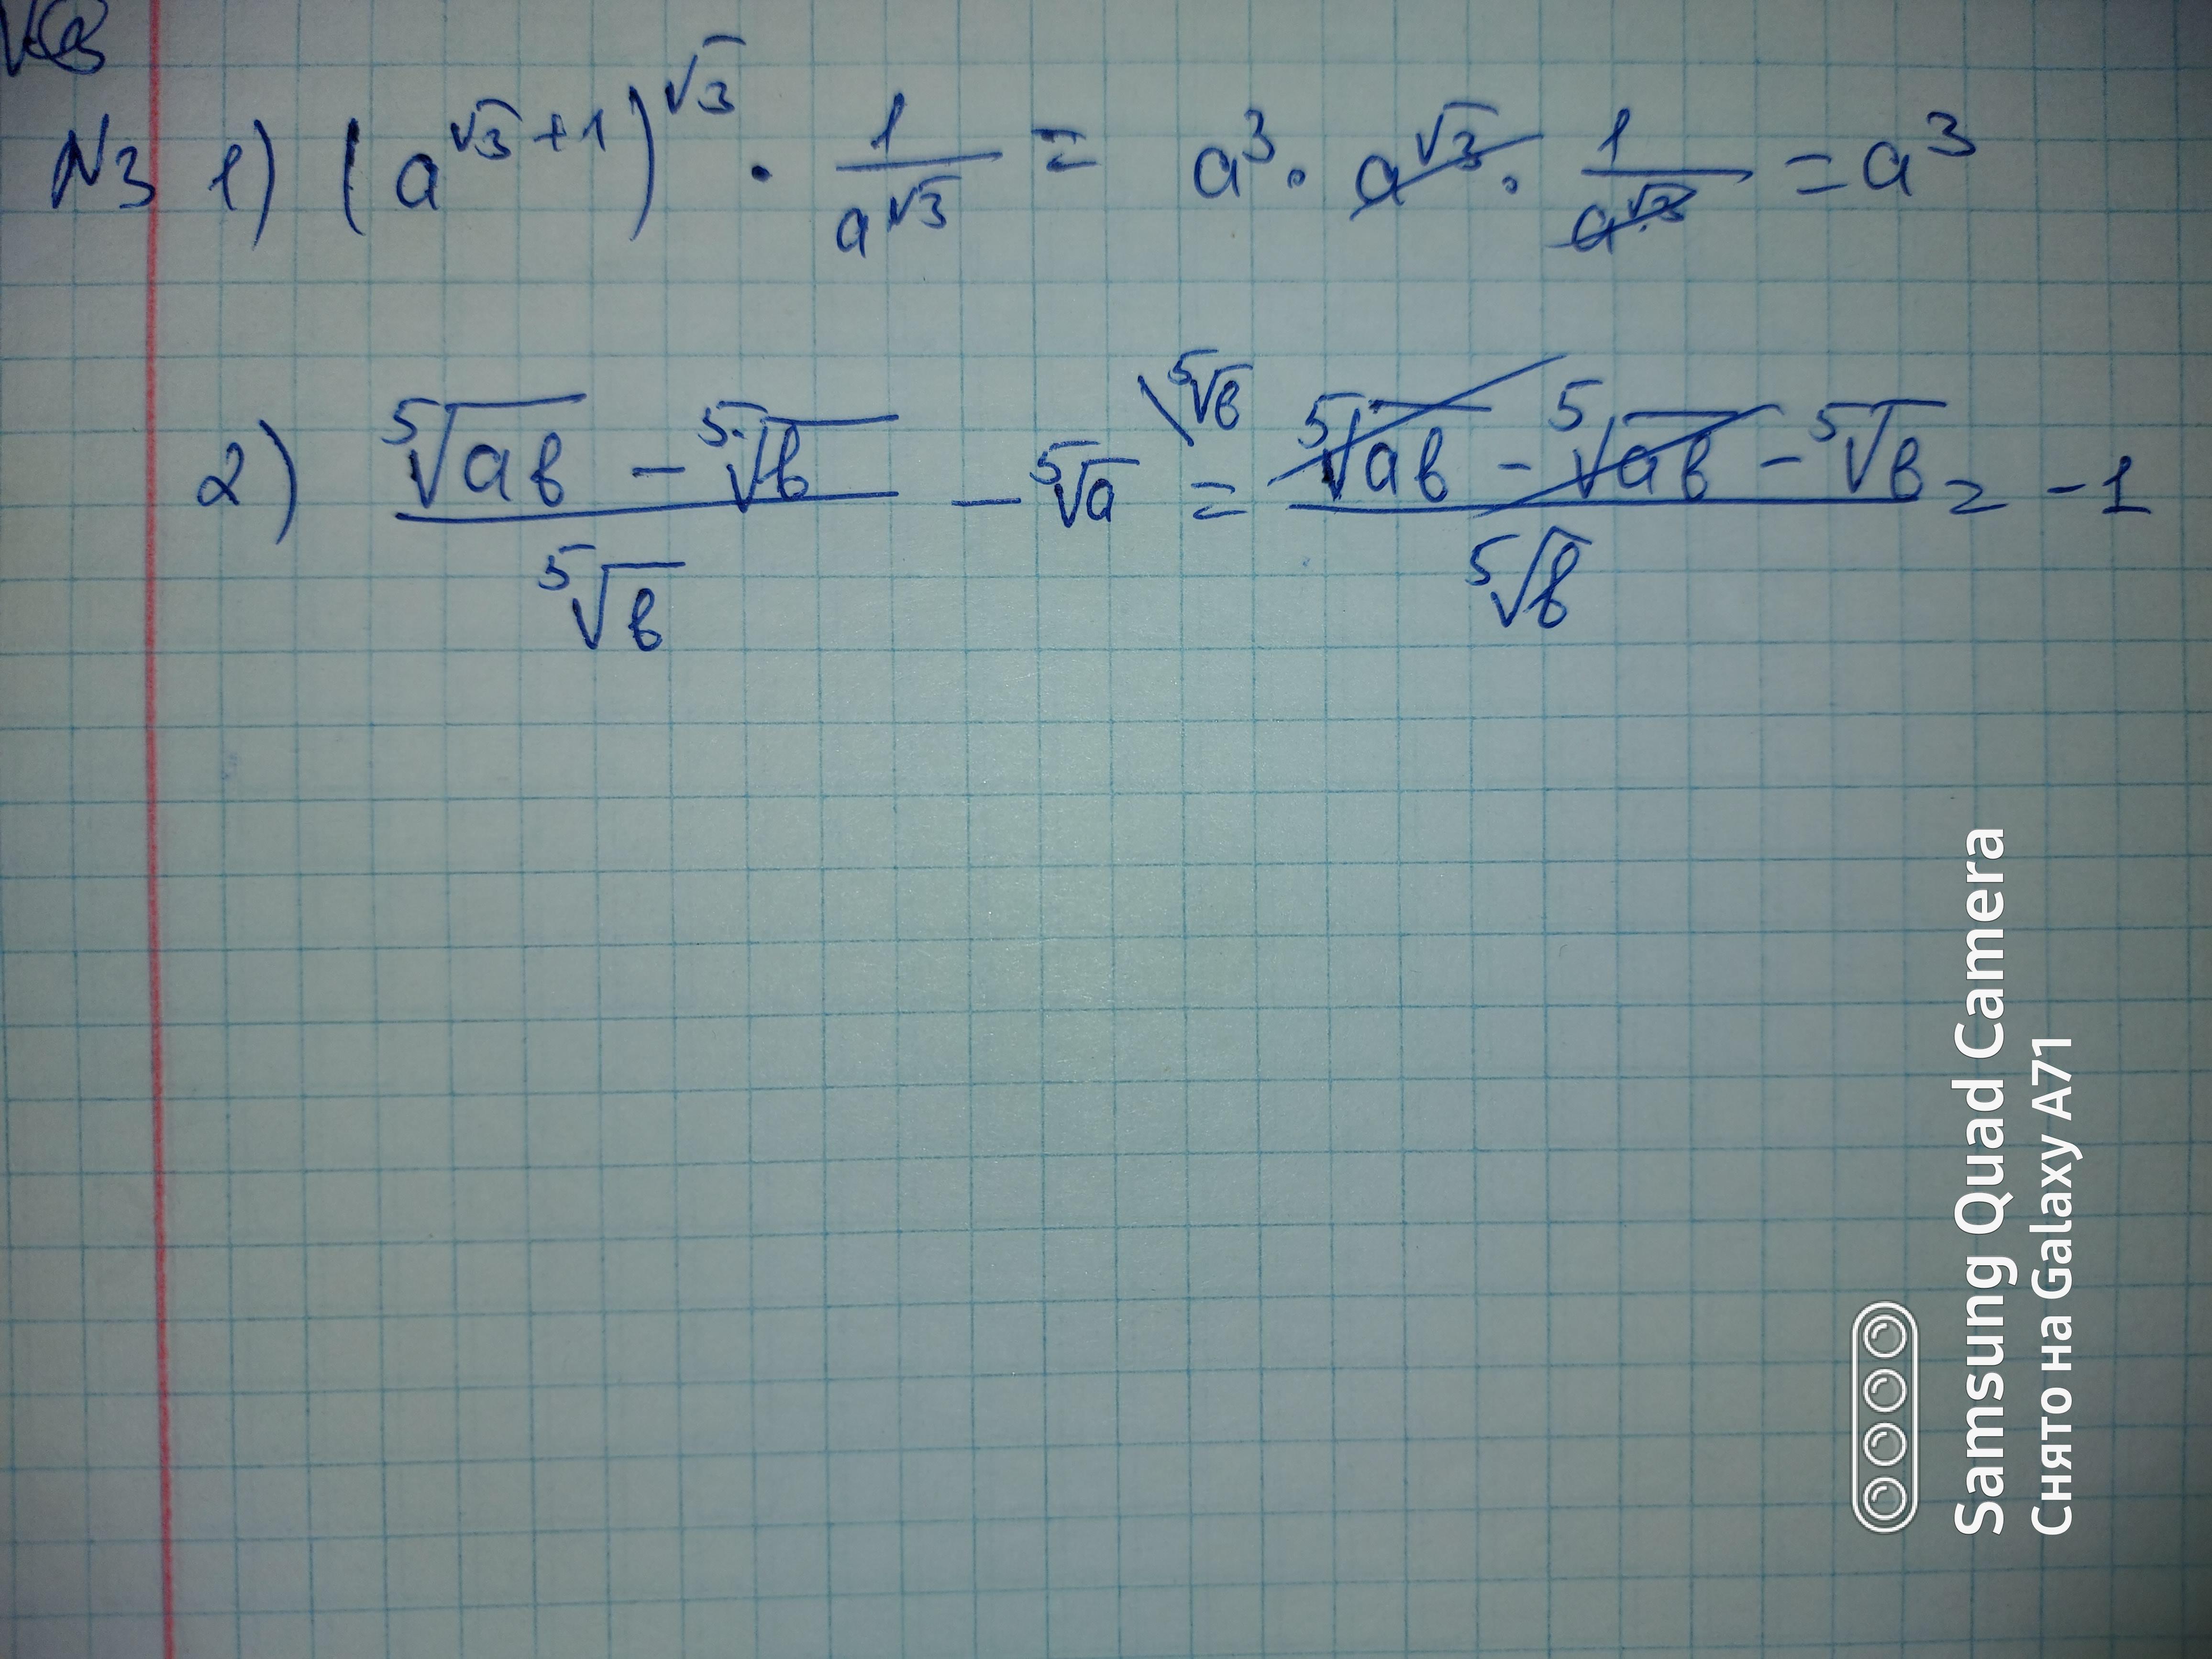 N3 1) (a^{√3+1})^{√3} · 1/a^{√3} = a^3 · a^{√3} · 1/a^{√3} = a^3
2) (⁵√aв − ⁵√в)/⁵√в − ⁵√a \⁵√в = (⁵√aв − ⁵√aв − ⁵√в)/⁵√в = -1
Samsung Quad Camera
Снято на Galaxy A71